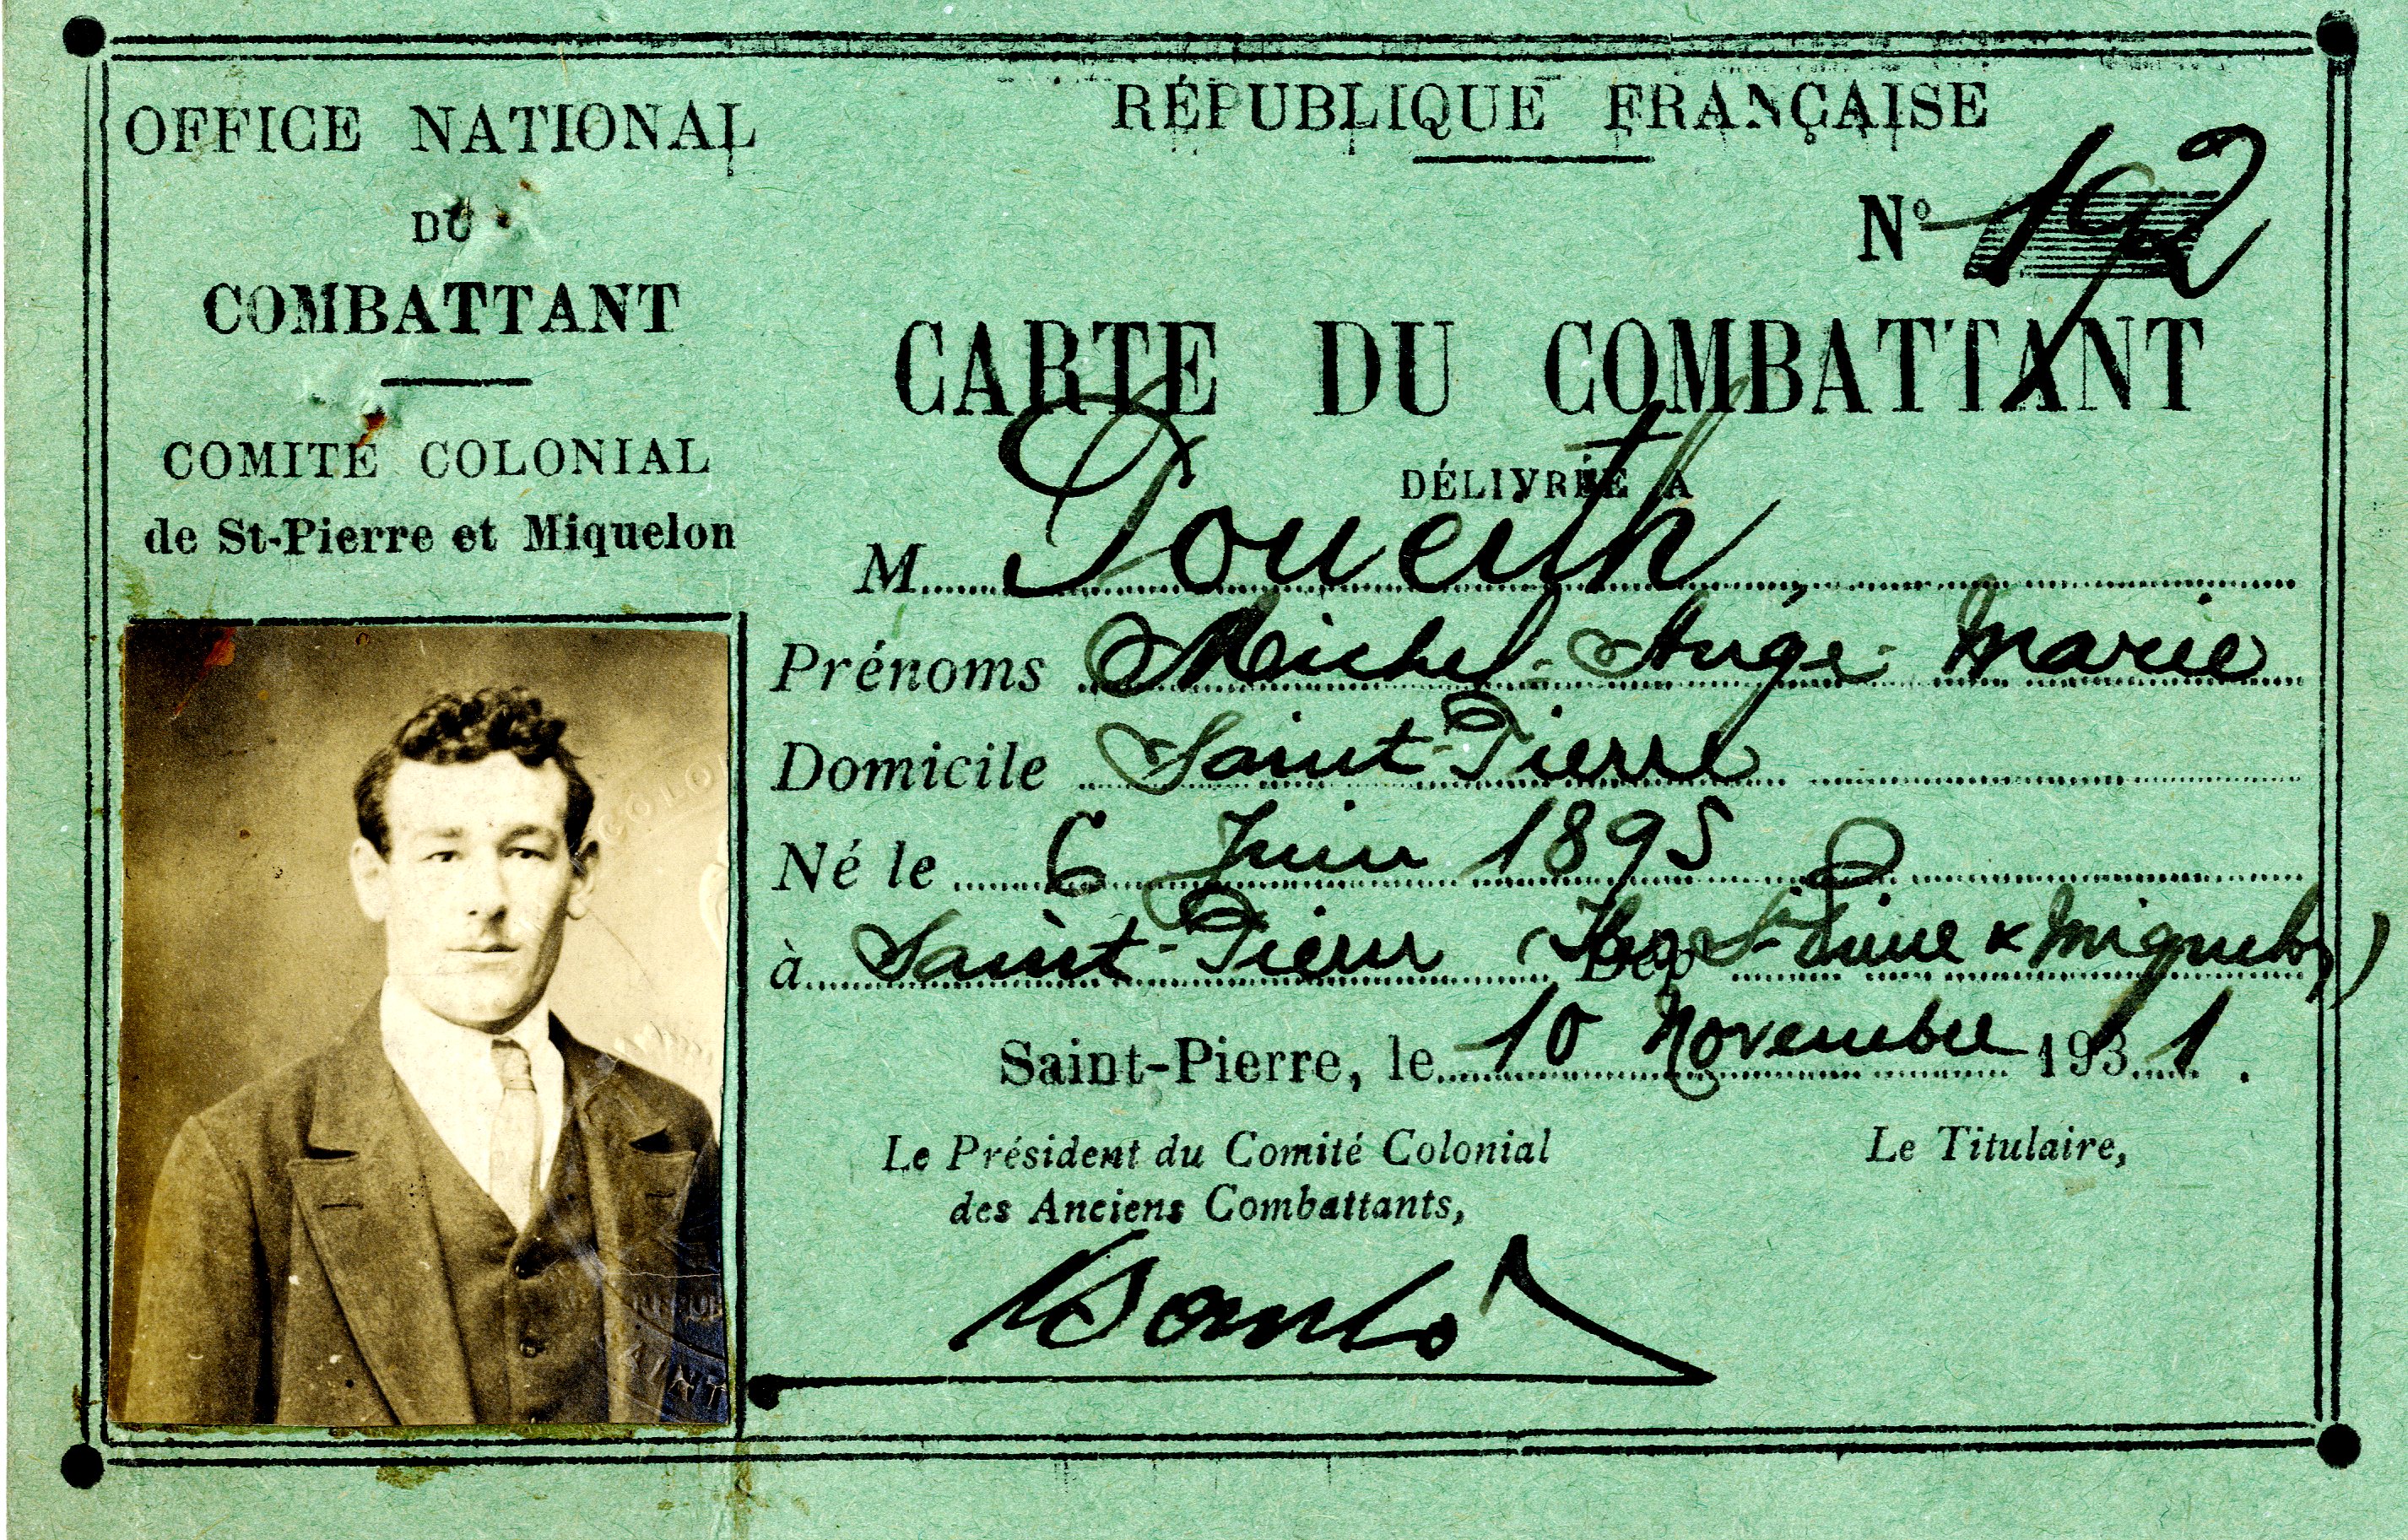 OFFICE NATIONAL
DU
COMBATTANT
COMITÉ COLONIAL
de St-Pierre et Miquelon
RÉPUBLIQUE FRANÇAISE
No 192
CARTE DU COMBATTANT
DÉLIVRÉE A
M
Prénoms Michel-Ange-Marie
Domicile Saint-Pierre
Né le 6 Juin 1895
à Saint-Pierre (Iles St Pierre & Miquelon)
Saint-Pierre, le 10 Novembre 1931.
Le Président du Comité Colonial
des Anciens Combattants,
Le Titulaire,